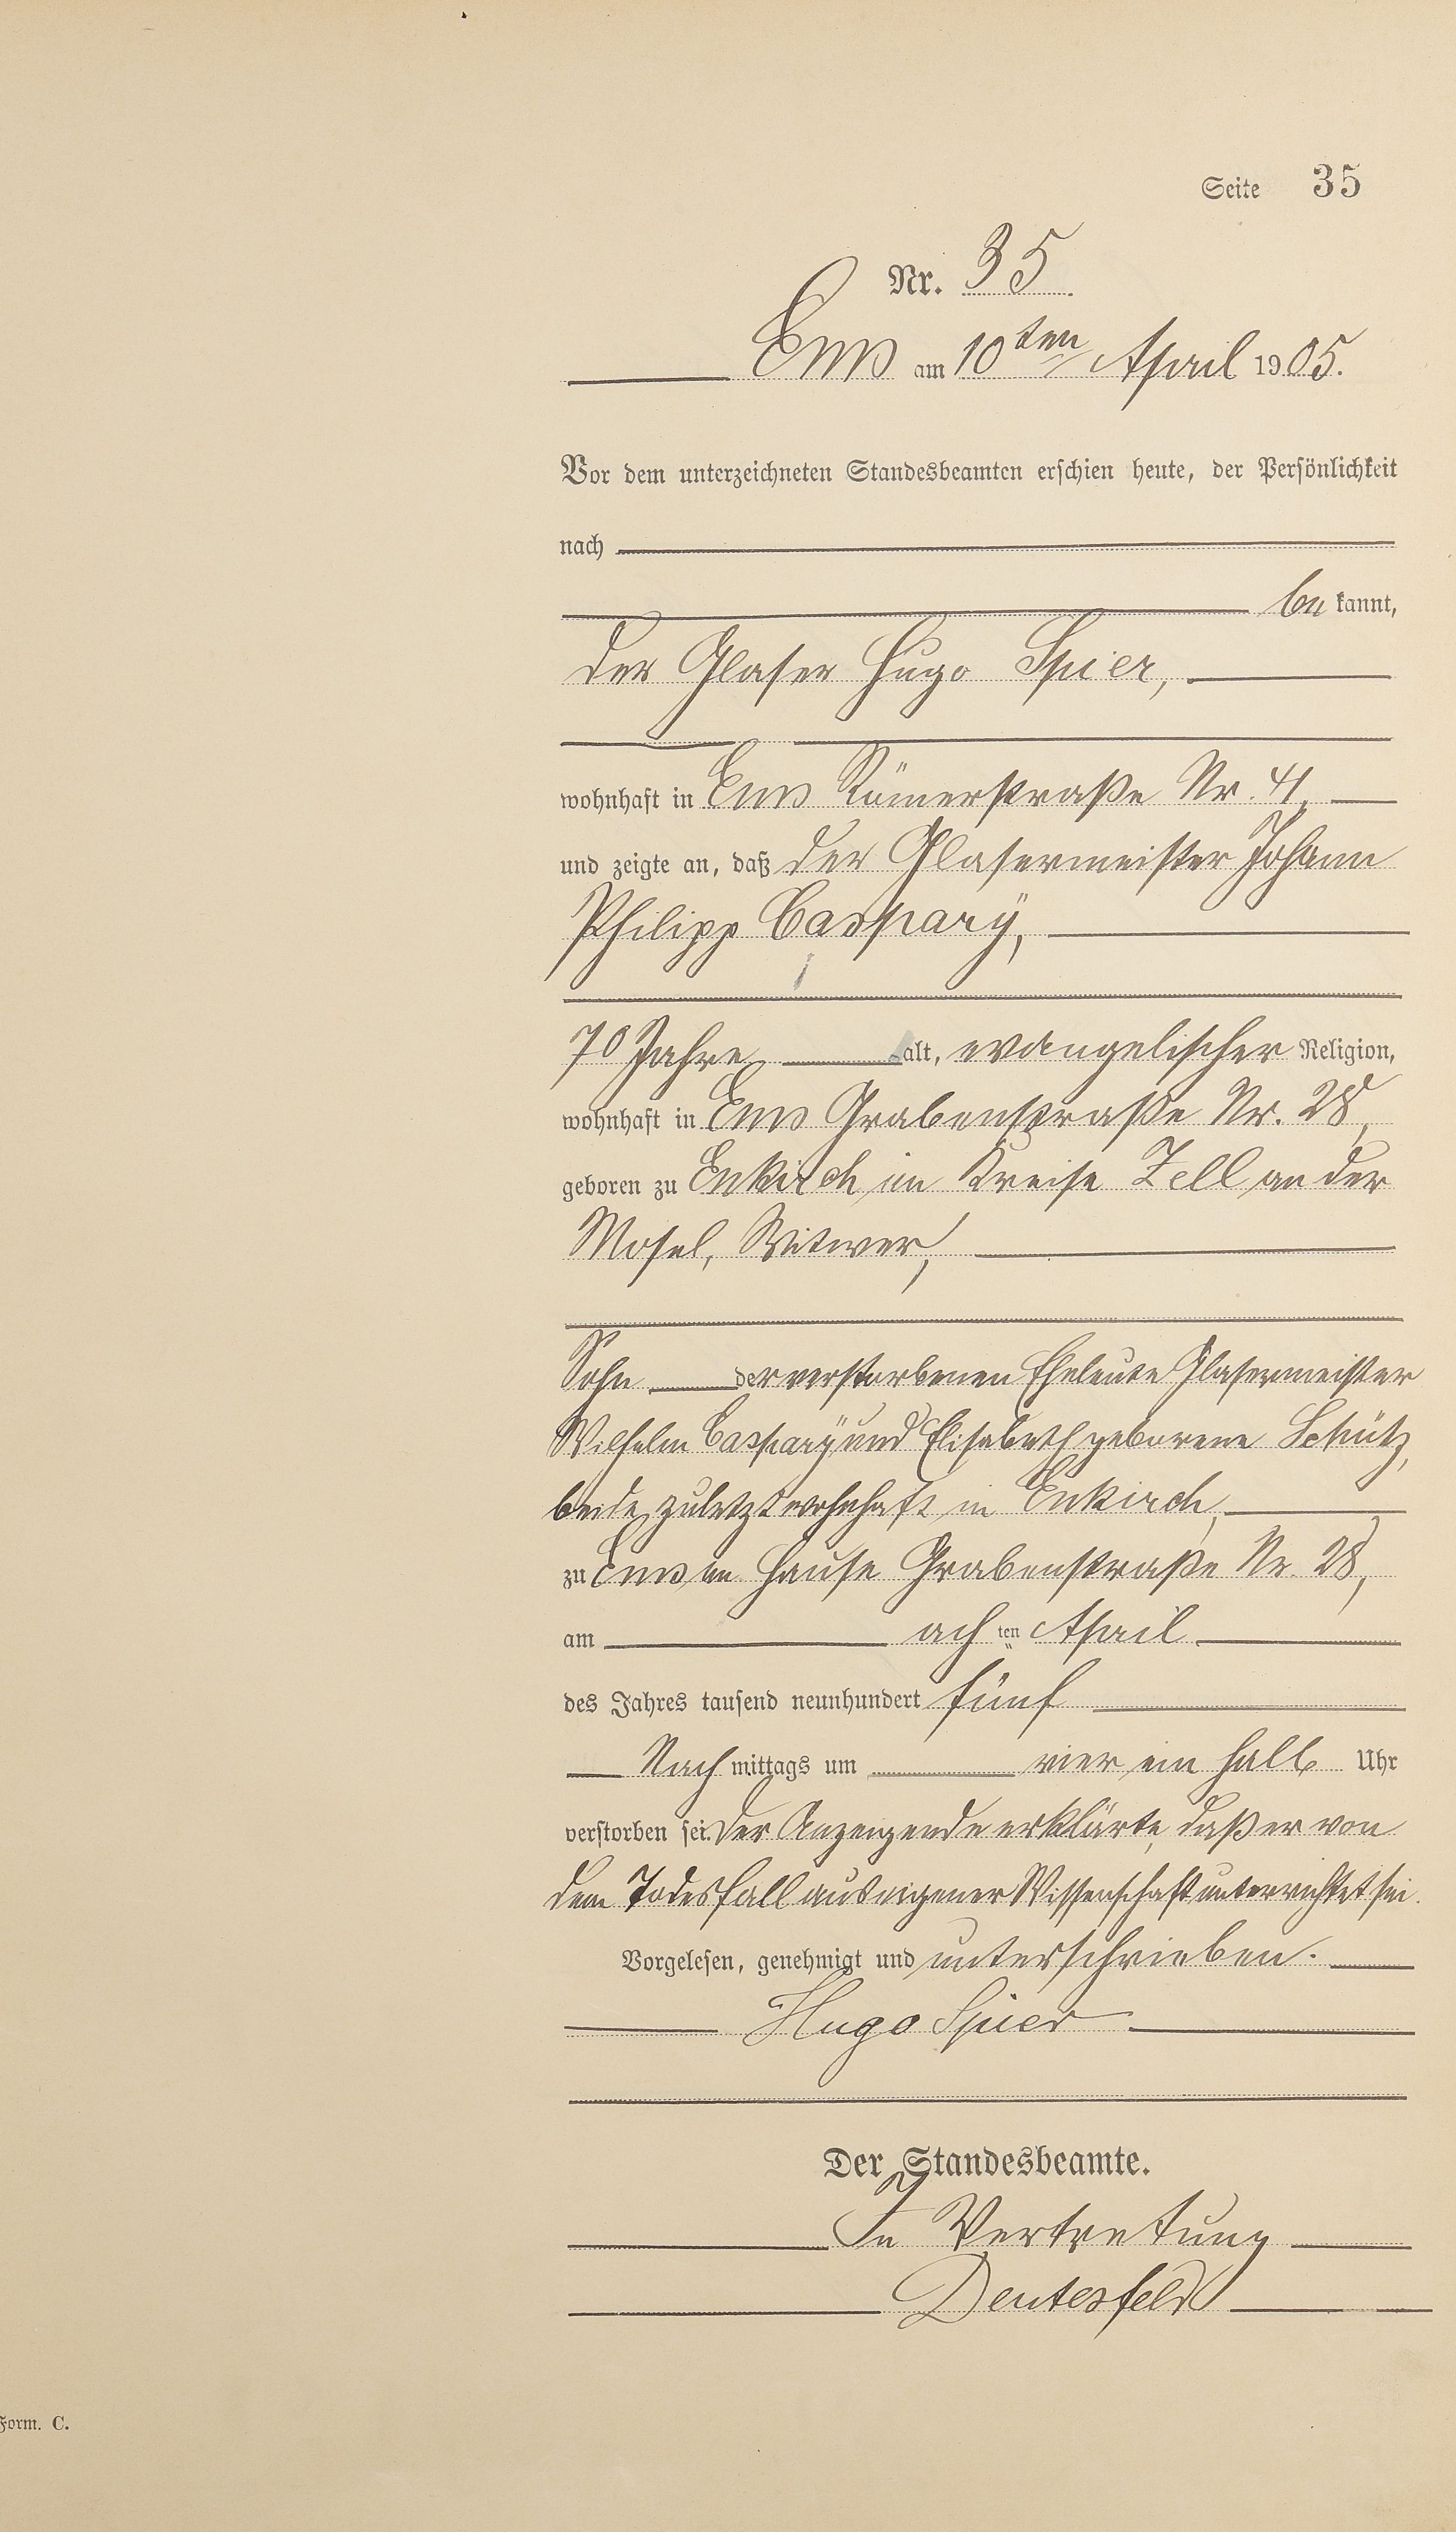 Seite 35
Nr. 35
Ems am 10ten April 1905.
Vor dem unterzeichneten Standesbeamten erschien heute, der Persönlichkeit
nach
be kannt,
der Glaser Hugo Spier,
wohnhaft in Ems Römerstraße Nr. 41,
und zeigte an, daß der Glasermeister Johann
Philipp Caspary,
70 Jahre alt, evangelischer Religion,
wohnhaft in Ems Grabenstraße Nr. 28,
geboren zu Enkirch im Kreise Zell an der
Mosel, Witwer,
Sohn der verstorbenen Eheleute Glasermeister
Wilhelm Casparÿ und Elisabeth geborene Schütz,
beide zuletzt wohnhaft in Enkirch,
zu Ems im Hause Grabenstraße Nr. 28,
am achten April
des Jahres tausend neunhundert fünf
Nach mittags um vier ein halb Uhr
verstorben sei. Der Anzeigende erklärte, daß er von
dem Todesfall aus eigener Wissenschaft unterrichtet sei.
Vorgelesen, genehmigt und unterschrieben.
Hugo Spier
Der Standesbeamte.
In Vertretung
Form. C.